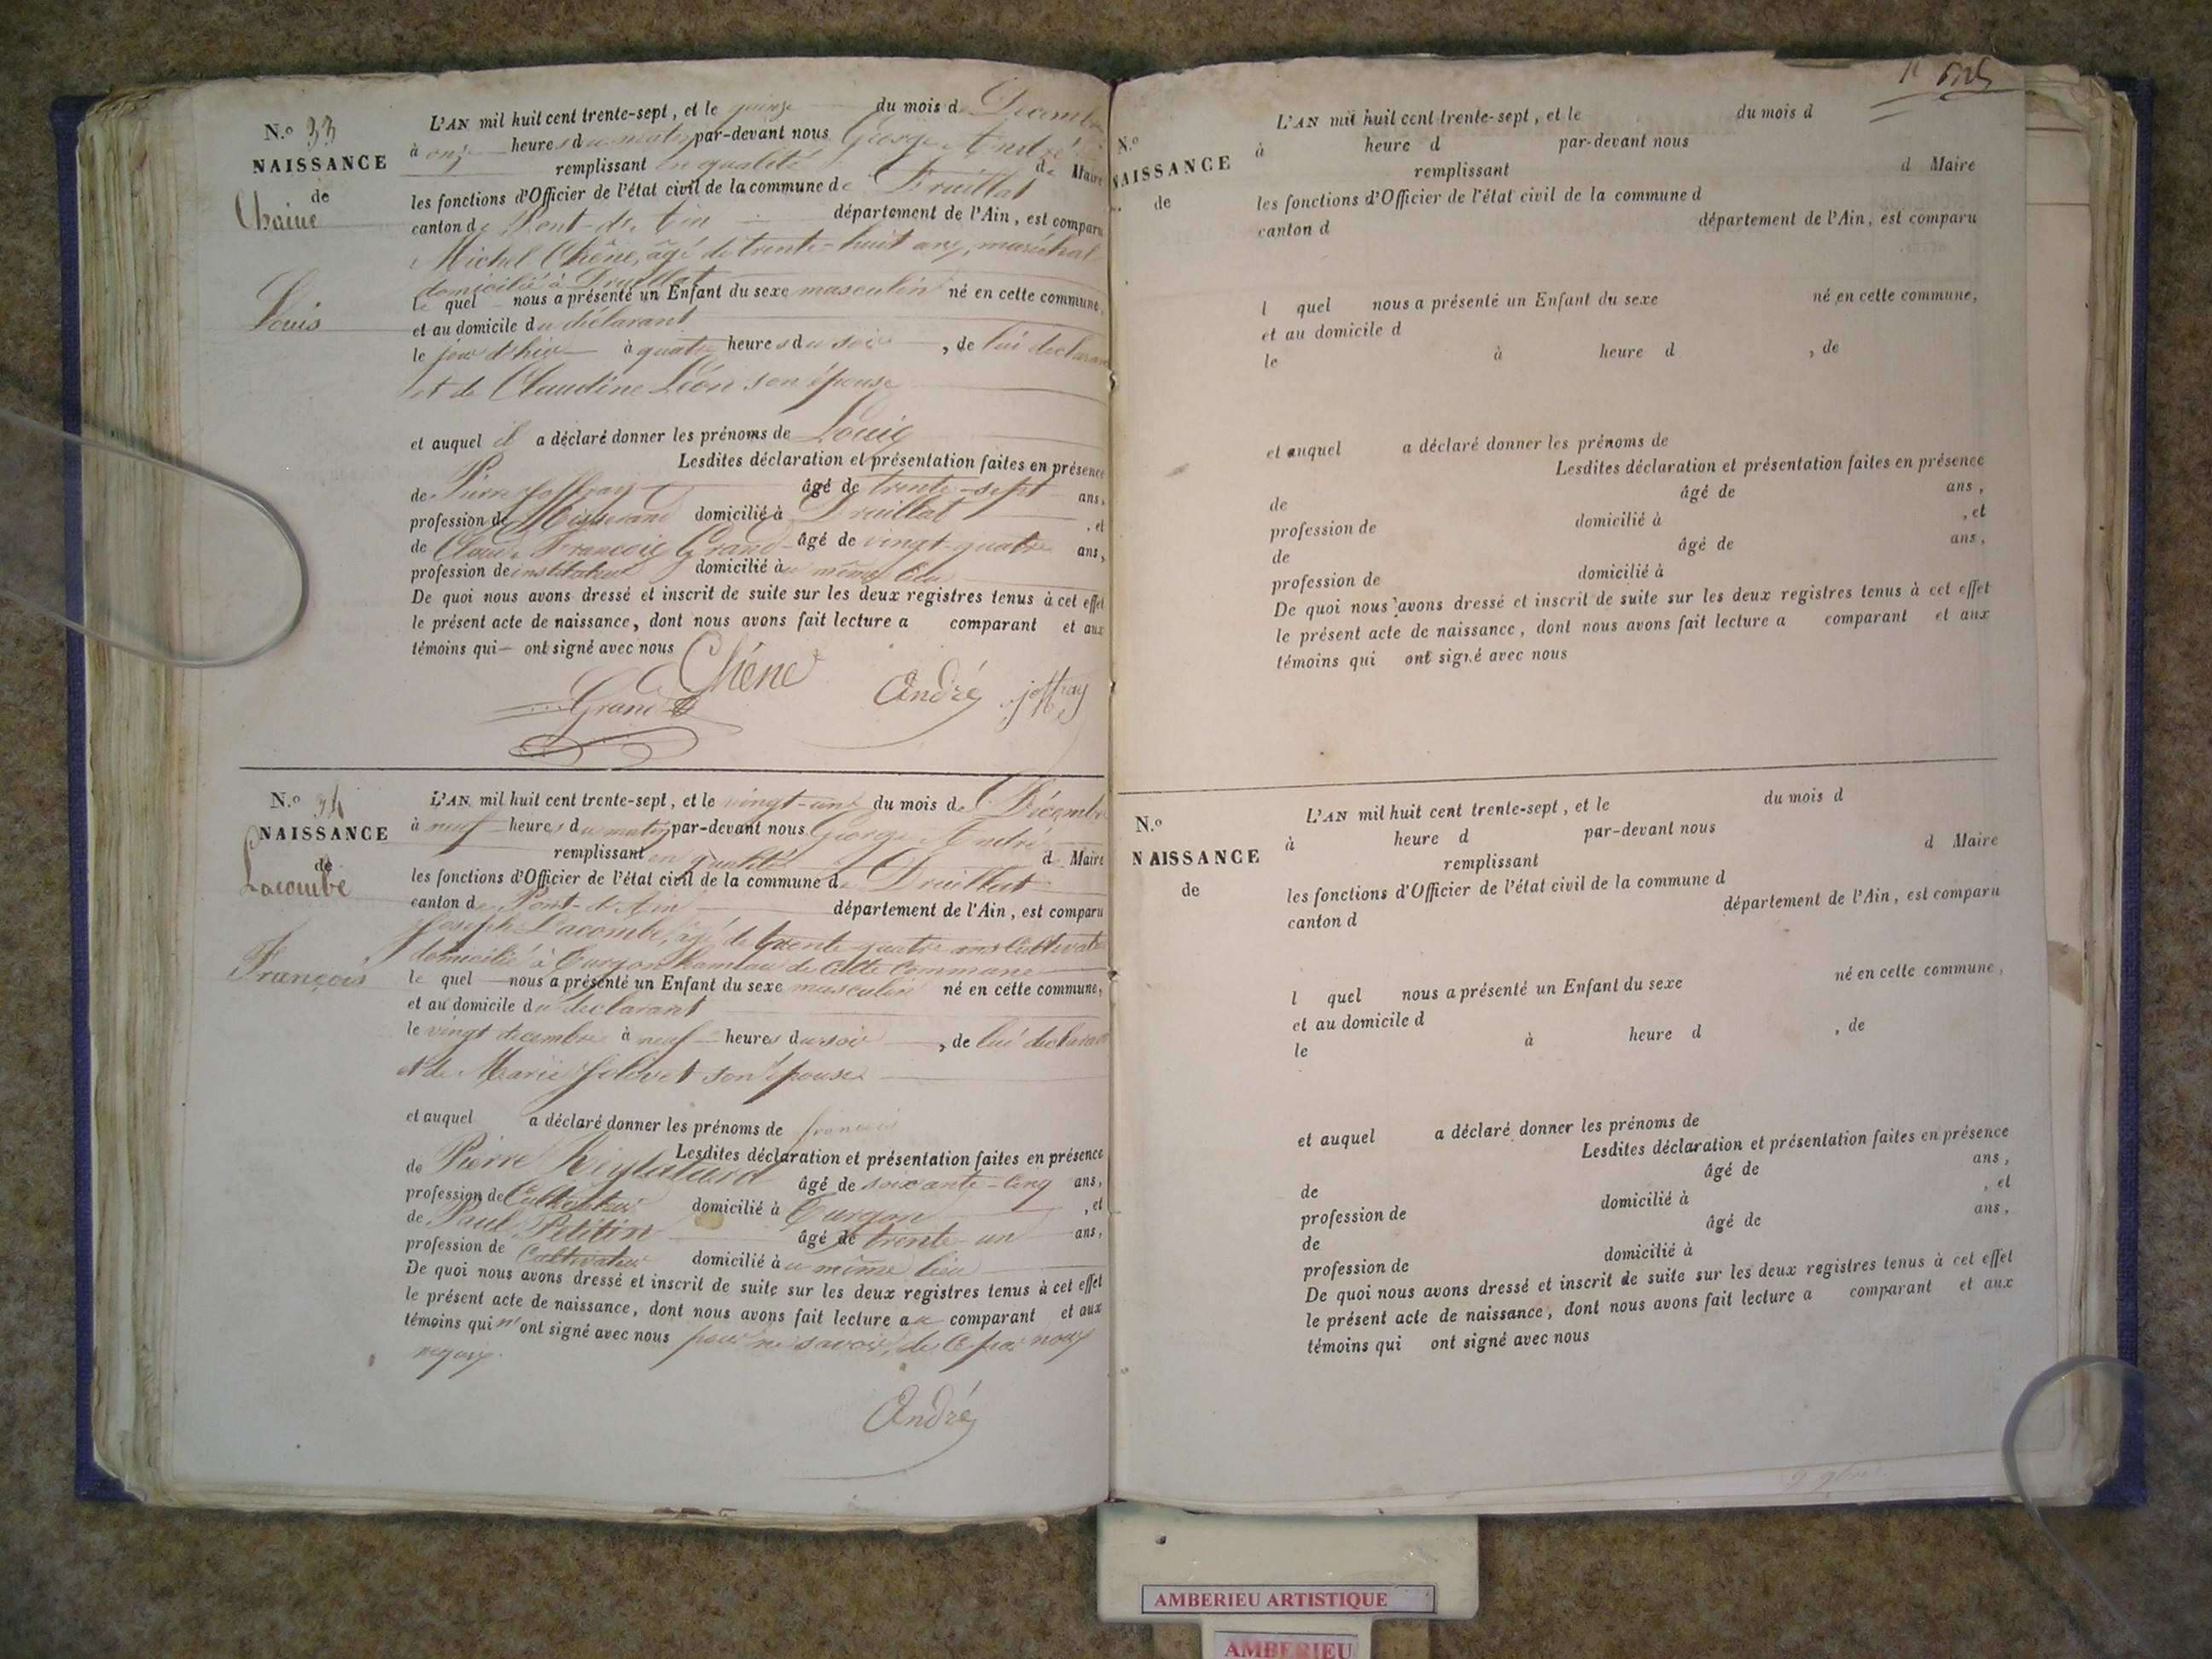 N.o 33
NAISSANCE
de
Chaine
Louis
L'AN mil huit cent trente-sept, et le quinze du mois de Décembre
à onze heures du matin par-devant nous George André
remplissant en qualité de Maire
les fonctions d'Officier de l'état civil de la commune de Druillat
canton de Pont-d'Ain département de l'Ain, est comparu
Michel Chêne, âgé de trente-huit ans, maréchal
domicilié à Druillat
le quel nous a présenté un Enfant du sexe masculin né en cette commune,
et au domicile du déclarant
le jour d'hier à quatre heures du soir, de lui déclarant
et de Claudine Léon son épouse
et auquel il a déclaré donner les prénoms de Louis
Lesdites déclaration et présentation faites en présence
de Pierre Joffray âgé de trente-sept ans,
profession de Tisserand domicilié à Druillat, et
de Claude François Grand âgé de vingt-quatre ans,
profession de instituteur domicilié au même lieu
De quoi nous avons dressé et inscrit de suite sur les deux registres tenus à cet effet
le présent acte de naissance, dont nous avons fait lecture a comparant et aux
témoins qui ont signé avec nous
Chêne
Grand André joffray
N.o 34
NAISSANCE
de
Lacombe
François
L'AN mil huit cent trente-sept, et le vingt-un du mois de Décembre
à neuf heures du matin par-devant nous George André
remplissant en qualité d Maire
les fonctions d'Officier de l'état civil de la commune de Druillat
canton de Pont-d'Ain département de l'Ain, est comparu
Joseph Lacombe, âgé de trente-quatre ans Cultivateur
domicilié à Turgon hameau de Cette Commune
le quel nous a présenté un Enfant du sexe masculin né en cette commune,
et au domicile du déclarant
le vingt decembre à neuf heures du soir, de lui déclarant
et de Marie son épouse
et auquel a déclaré donner les prénoms de françois
Lesdites déclaration et présentation faites en présence
de Pierre âgé de soixante-cinq ans,
profession de Cultivateur domicilié à Turgon, et
de Paul Petitin âgé de trente-un ans,
profession de Cultivateur domicilié au même lieu
De quoi nous avons dressé et inscrit de suite sur les deux registres tenus à cet effet
le présent acte de naissance, dont nous avons fait lecture au comparant et aux
témoins qui n'ont signé avec nous pour ne savoir, de ce par nous
requis.
André
N.o
NAISSANCE
de
L'AN mil huit cent trente-sept, et le du mois d
à heure d par-devant nous
remplissant d Maire
les fonctions d'Officier de l'état civil de la commune d
canton d département de l'Ain, est comparu
l quel nous a présenté un Enfant du sexe né en cette commune,
et au domicile d
le à heure d , de
et auquel a déclaré donner les prénoms de
Lesdites déclaration et présentation faites en présence
de âgé de ans,
profession de domicilié à , et
de âgé de ans,
profession de domicilié à
De quoi nous avons dressé et inscrit de suite sur les deux registres tenus à cet effet
le présent acte de naissance, dont nous avons fait lecture a comparant et aux
témoins qui ont signé avec nous
N.o
NAISSANCE
de
L'AN mil huit cent trente-sept, et le du mois d
à heure d par-devant nous
remplissant d Maire
les fonctions d'Officier de l'état civil de la commune d
canton d département de l'Ain, est comparu
l quel nous a présenté un Enfant du sexe né en cette commune,
et au domicile d
le à heure d , de
et auquel a déclaré donner les prénoms de
Lesdites déclaration et présentation faites en présence
de âgé de ans,
profession de domicilié à , et
de âgé de ans,
profession de domicilié à
De quoi nous avons dressé et inscrit de suite sur les deux registres tenus à cet effet
le présent acte de naissance, dont nous avons fait lecture a comparant et aux
témoins qui ont signé avec nous
AMBERIEU ARTISTIQUE
AMBERIEU